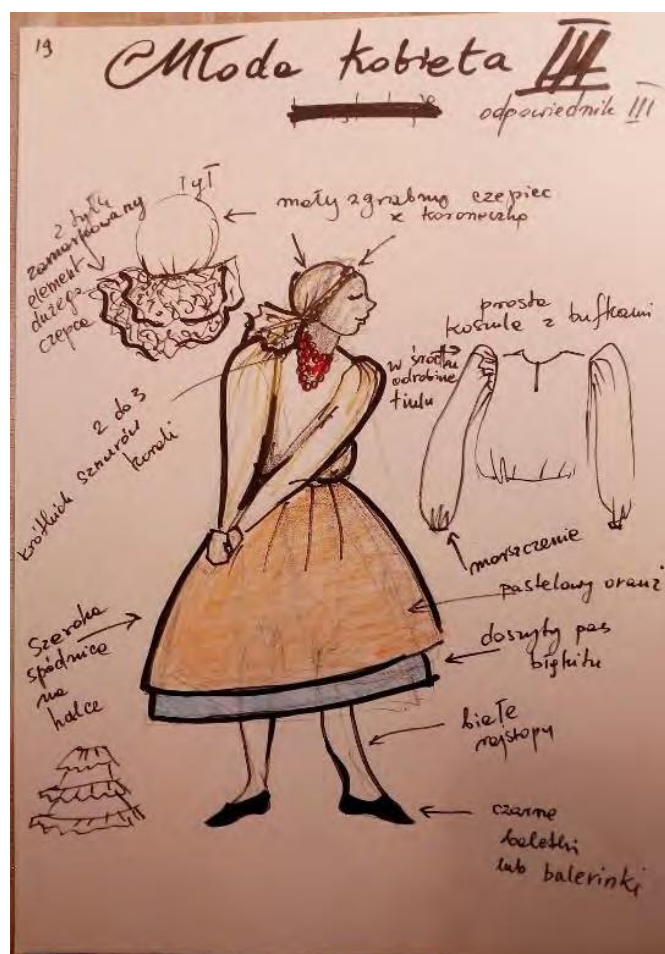 19
Młoda kobieta III
odpowiednik III
Tył
z tyłu
zamarkowany
element
dużego
czepca
mały zgrabny czepiec
z koroneczką
prosta
koszula z bufkami
w środku
odrobina
tiulu
2 do 3
krótkich sznurów
korali
marszczenie
pastelowy oranż
Szeroka
spódnica
na
halce
doszyty pas
błękitu
białe
rajstopy
czarne
baletki
lub balerinki